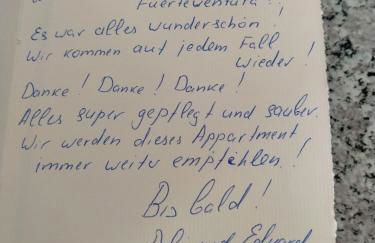 Fuerteventura !
Es war alles wunderschön !
Wir kommen auf jedem Fall
wieder !
Danke ! Danke ! Danke !
Alles super gepflegt und sauber.
Wir werden dieses Appartment
immer weiter empfehlen !
Bis bald !
und Eduard